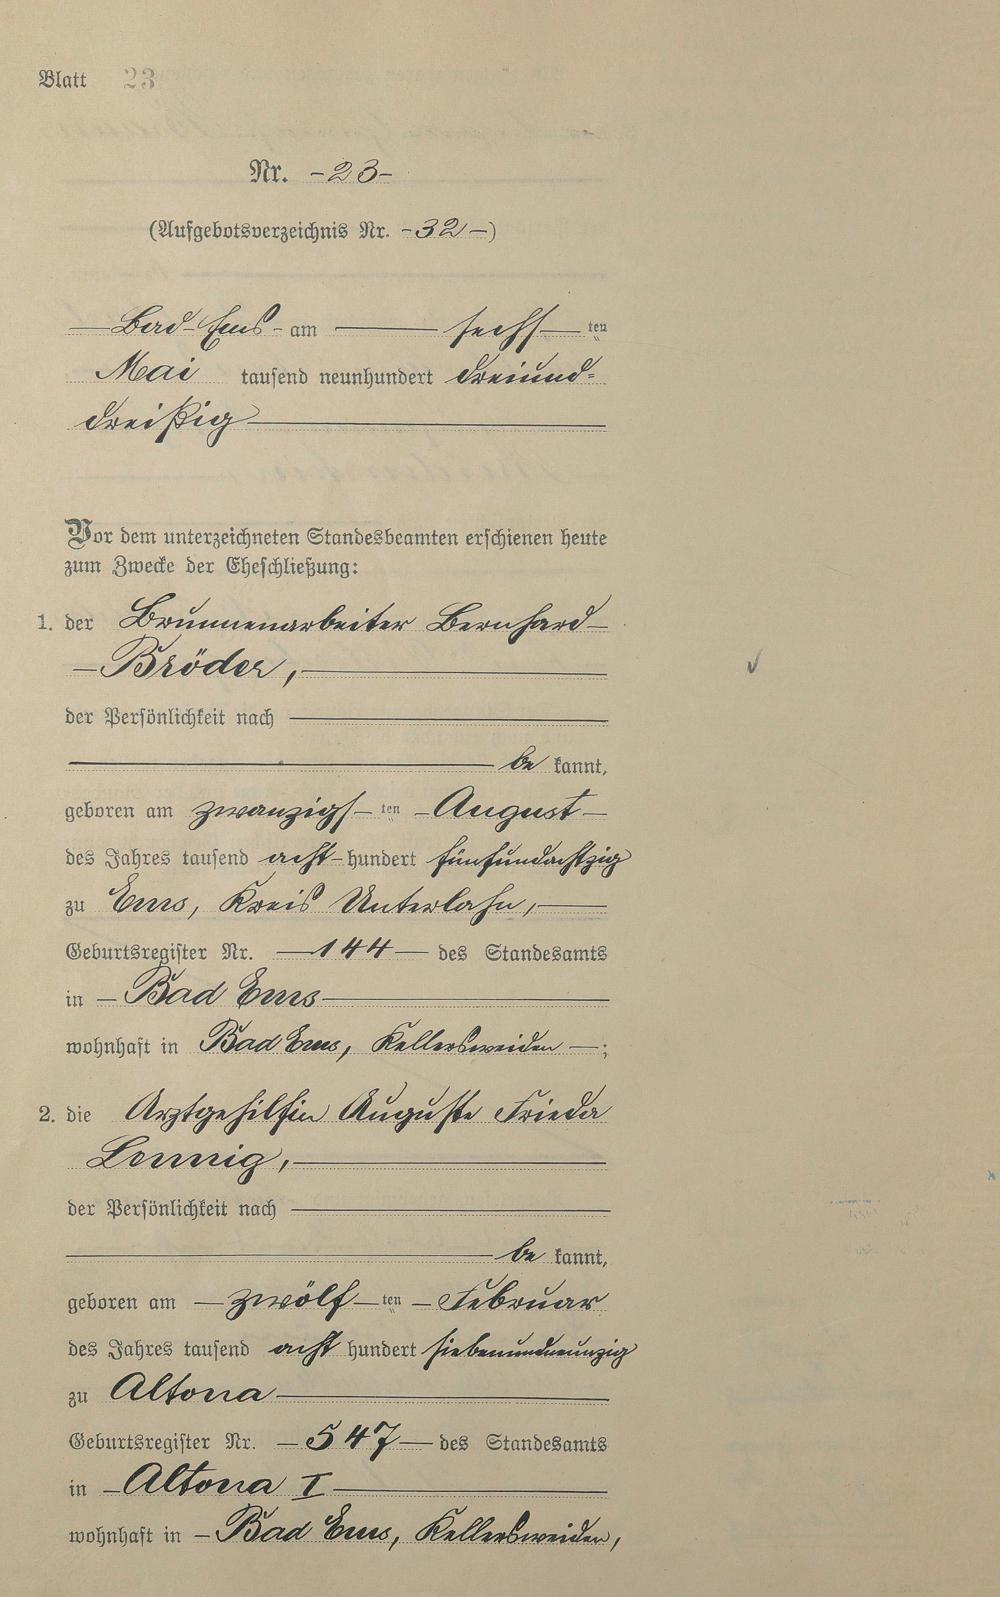 Blatt 23
Nr. -23-
(Aufgebotsverzeichnis Nr. -32-)
Bad-Ems- am sechs- ten
Mai tausend neunhundert dreiund-
dreißig
Vor dem unterzeichneten Standesbeamten erschienen heute
zum Zwecke der Eheschließung:
1. der Brunnenarbeiter Bernhard-
-Bröder,
der Persönlichkeit nach
be kannt,
geboren am zwanzigs- ten -August-
des Jahres tausend acht- hundert fünfundachtzig
zu Ems, Kreis Unterlahn,
Geburtsregister Nr. -144- des Standesamts
in -Bad Ems-
wohnhaft in Bad Ems, Kellersweiden -;
2. die Arztgehilfin Auguste Frieda
Lennig,
der Persönlichkeit nach
be kannt,
geboren am -zwölf- ten -Februar
des Jahres tausend acht hundert siebenundneunzig
zu Altona
Geburtsregister Nr. -547- des Standesamts
in -Altona I-
wohnhaft in -Bad Ems, Kellersweiden,